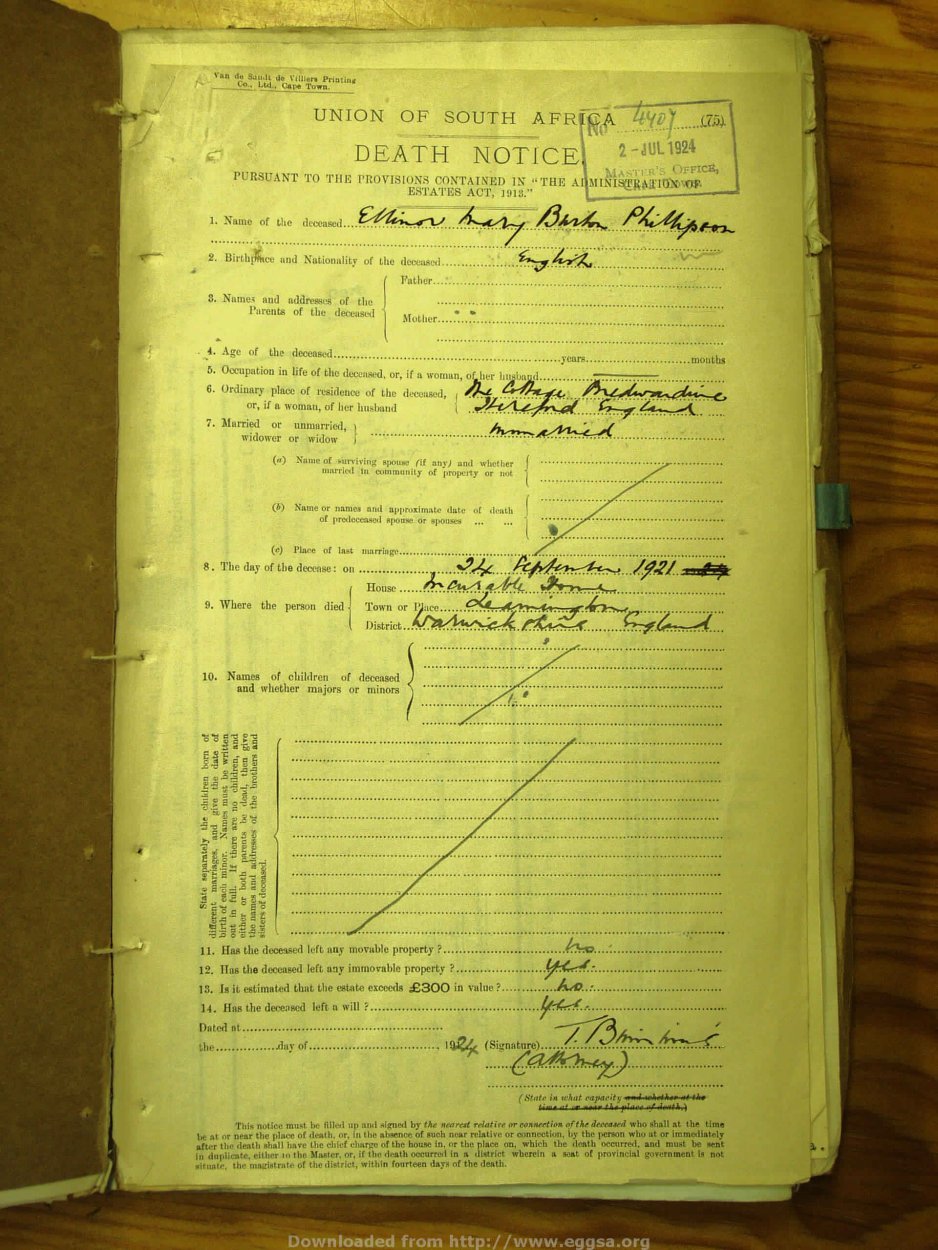 Van de Sandt de Villiers Printing
Co., Ltd., Cape Town.
UNION OF SOUTH AFRICA
No 4407 (75)
2 - JUL 1924
MASTER'S OFFICE,
DEATH NOTICE.
PURSUANT TO THE PROVISIONS CONTAINED IN "THE ADMINISTRATION OF
ESTATES ACT, 1913."
1. Name of the deceased Ellinor Mary Burton Phillipson
2. Birthplace and Nationality of the deceased English
3. Names and addresses of the
Parents of the deceased
Father
Mother
4. Age of the deceased years months
5. Occupation in life of the deceased, or, if a woman, of her husband
6. Ordinary place of residence of the deceased, The Cottage Bredwardine
or, if a woman, of her husband Hereford England
7. Married or unmarried, widower or widow unmarried
(a) Name of surviving spouse (if any) and whether
married in community of property or not
(b) Name or names and approximate date of death
of predeceased spouse or spouses ... ...
(c) Place of last marriage
8. The day of the decease: on 24 September 1921
9. Where the person died
House Incurable Home
Town or Place Leamington
District Warwickshire England
10. Names of children of deceased
and whether majors or minors
State separately the children born of
different marriages, and give the date of
birth of each minor. Names must be written
out in full. If there are no children, and
either or both parents be dead, then give
the names and addresses of the brothers and
sisters of deceased.
11. Has the deceased left any movable property ? no
12. Has the deceased left any immovable property ? yes.
13. Is it estimated that the estate exceeds £300 in value ? no.
14. Has the deceased left a will ? yes.
Dated at
the day of 1924 (Signature) T.
(Attorney)
(State in what capacity and whether at the
time at or near the place of death.)
This notice must be filled up and signed by the nearest relative or connection of the deceased who shall at the time
be at or near the place of death, or, in the absence of such near relative or connection, by the person who at or immediately
after the death shall have the chief charge of the house in, or the place on, which the death occurred, and must be sent
in duplicate, either to the Master, or, if the death occurred in a district wherein a seat of provincial government is not
situate, the magistrate of the district, within fourteen days of the death.
Downloaded from http://www.eggsa.org